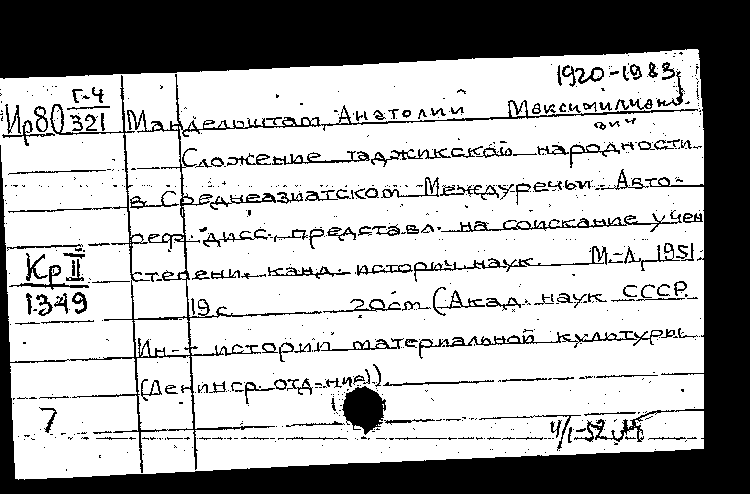 1920-1983
Ир80 Г-4 321
Мандельштам, Анатолий Максимилиано-
вич
Сложение таджикской народности
в Среднеазиатском Междуречьи. Авто-
реф. дисс., представл. на соискание учен
степени. канд. историч наук. М.-Л, 1951.
Кр II 1349
19 с. 20 см (Акад. наук СССР.
Ин-т истории материальной культуры
(Ленингр. отд-ние)).
7
4/I-52